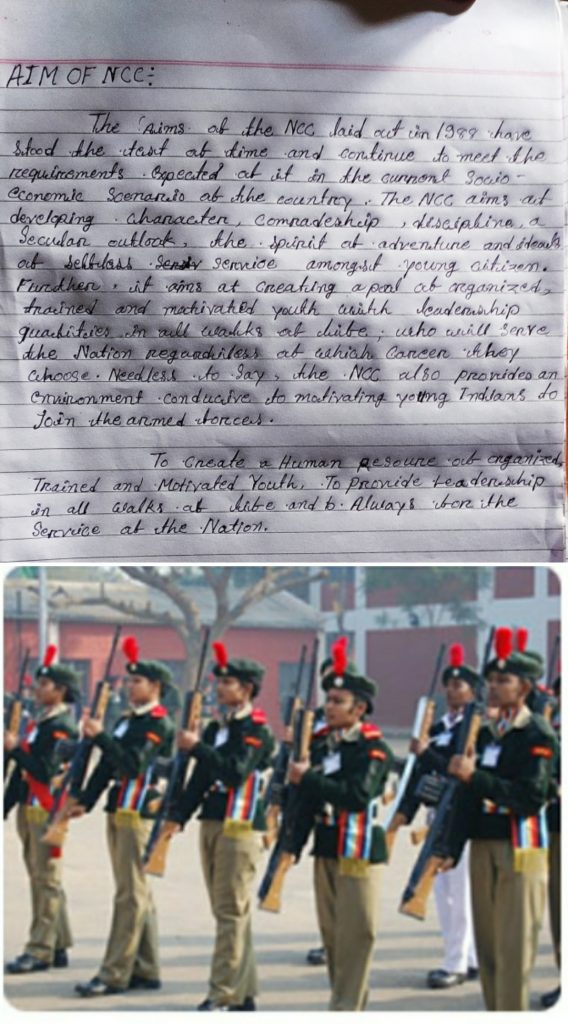 AIM OF NCC:
The Aims of the NCC laid out in 1988 have
stood the test of time and continue to meet the
requirements Expected of it in the current Socio-
economic Scenario of the country. The NCC aims at
developing character, Comradeship, discipline, a
Secular outlook, the spirit of adventure and ideals
of selfless service amongst young citizen.
Further, it aims at creating a pool of organized,
trained and motivated youth with leadership
qualities in all walks of life, who will Serve
the Nation regardless of which Career they
choose. Needless to Say, the NCC also provides an
Environment conducive to motivating young Indians to
Join the armed forces.
To Create a Human Resource of organized,
Trained and Motivated Youth, To Provide Leadership
in all walks of life and b. Always for the
Service of the Nation.